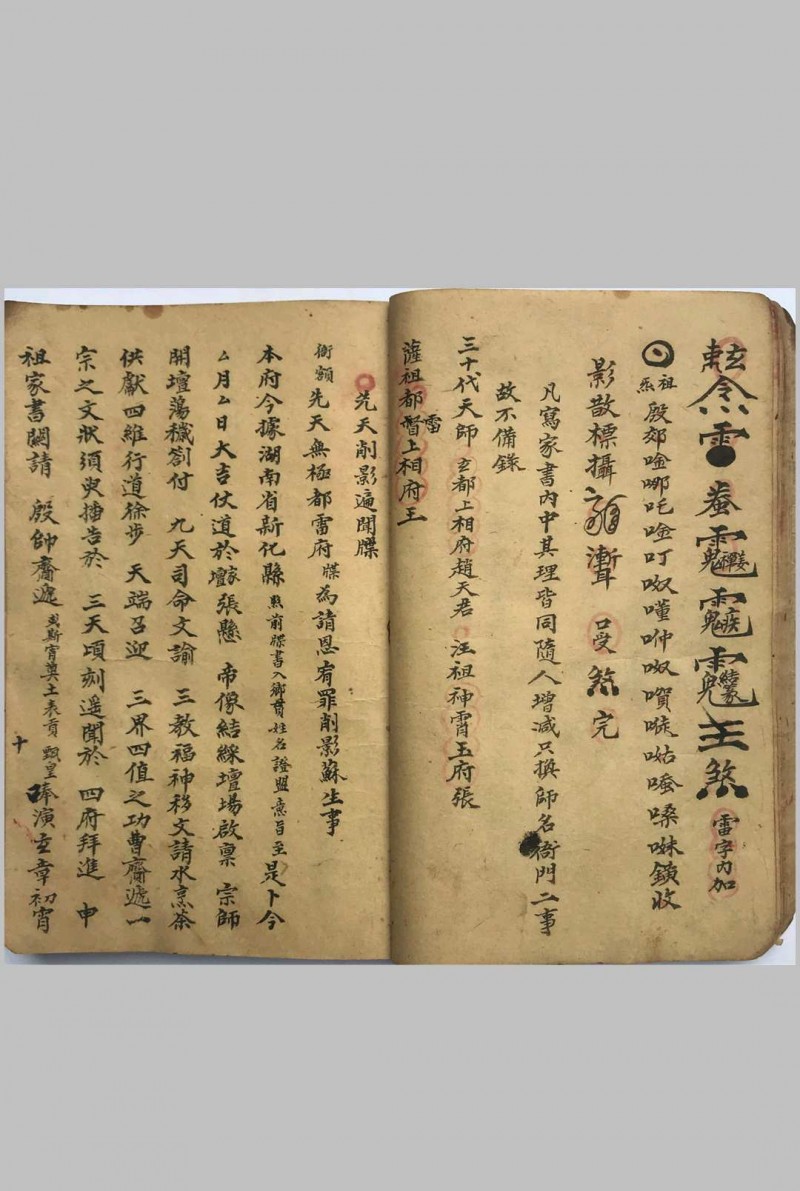 雷字內加
祖
殷郊唫哪吒唫叮呶嘆呶姑嗓鎖收
影散標攝漸 受煞完
凡寫家書內中其理皆同隨人增減只換師名衙門二事
故不備錄
三十代天師 玄都上相府趙天君 汪祖神霄玉府張
薩祖都督上相府王
雷
先天削影遍開牒
銜額 先天無極都雷府 牒 為請恩宥罪削影蘇生事
本府今據湖南省新化縣 照前牒書入鄉貫姓名證盟意旨至 是卜今
ム月ム日大吉仗道於 家 壇張懸 帝像結綵壇場啟稟 宗師
開壇蕩穢劄付 九天司命文諭 三教福神移文請水烹茶
供獻四維行道徐步 天端召迎 三界四值之功曹齎遞一
宗之文狀須臾播告於 三天頃刻遥聞於 四府拜進 申
祖家書關請 殷帥齎遞 奠土表貢 皇 演玄章初宵
十